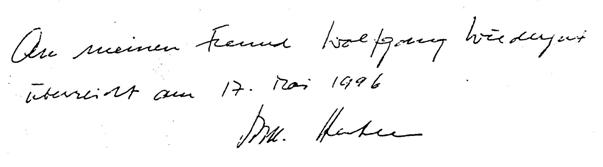 An meinen Freund Wolfgang Wiedergut
überreicht am 17. Mai 1996